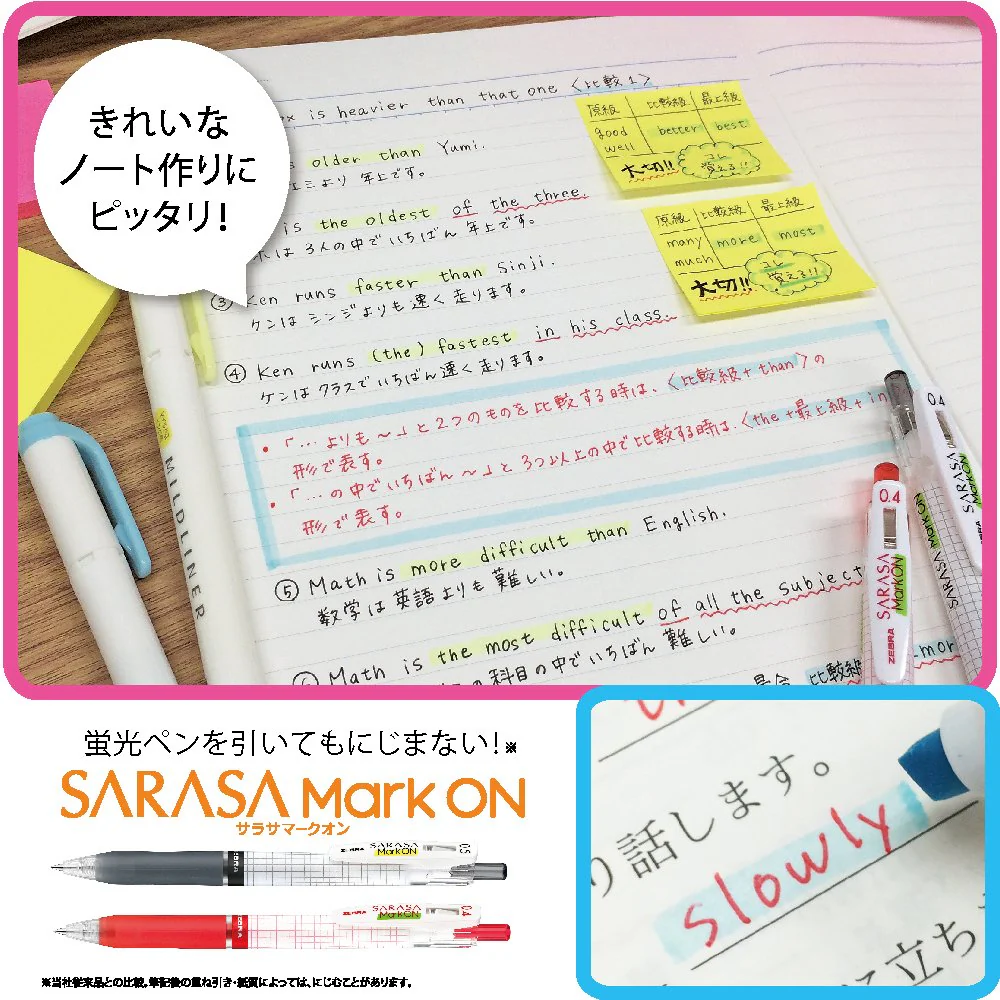 きれいな
ノート作りに
ピッタリ！
is heavier than that one 〈比較1〉
older than Yumi.
より 年上です。
is the oldest of the three.
は 3人の中でいちばん 年上です。
③ Ken runs faster than Sinji.
ケンは シンジよりも 速く 走ります。
④ Ken runs (the) fastest in his class.
ケンは クラスで いちばん 速く 走ります。
・「… よりも ～」と 2つのものを 比較する時は、〈比較級+than〉の
形で表す。
・「…の中でいちばん ～」と 3つ以上の中で比較する時は、〈the+最上級+in
形で表す。
⑤ Math is more difficult than English.
数学は 英語よりも 難しい。
Math is the most difficult of all the subject
の科目の中でいちばん 難しい。
比較級
more
原級 比較級 最上級
good better best
well
大切!! コレ
覚える!!
原級 比較級 最上級
many more most
much
大切!! コレ
覚える!!
MILDLINER
0.4
SARASA
MarkON
ZEBRA
0.4
SARASA
MarkON
MarkON
SARASA
蛍光ペンを引いてもにじまない！※
SARASA Mark ON
サラサマークオン
ZEBRA
SARASA
MarkON
0.5
ZEBRA
ZEBRA
SARASA
MarkON
0.4
※当社従来品との比較。筆記後の重ね引き・紙質によっては、にじむことがあります。
り話します。
slowly
に立ち